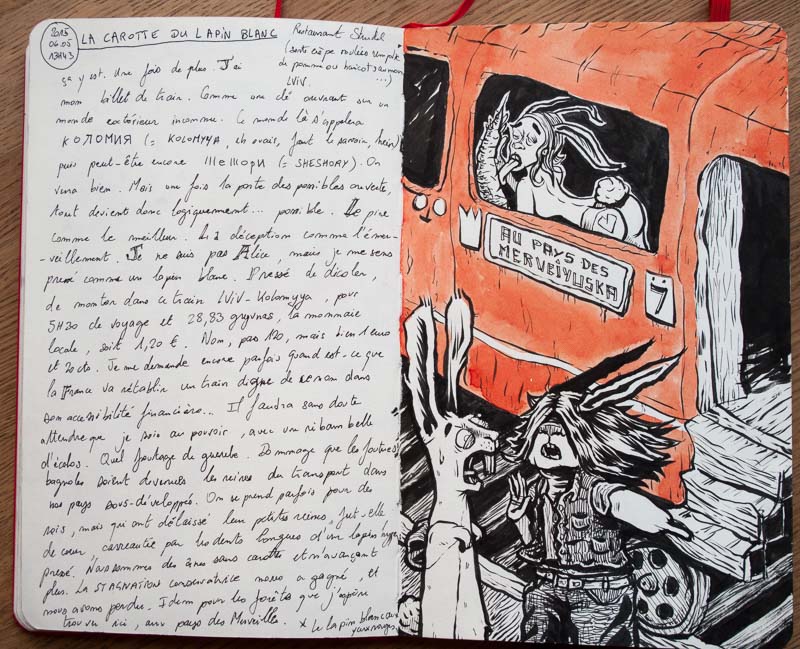 2015
06.05
13H43
LA CAROTTE DU LAPIN BLANC
Restaurant
(sorte crêpe roulées remplie
de pomme ou haricot saumon
...)
LVIV.
ça y est. Une fois de plus. J'ai
mon billet de train. Comme une clé ouvrant sur un
monde extérieur inconnu. Ce monde là s'appelera
КОЛОМИЯ (= KOLOMYYA, eh ouais, faut le savoir, hein)
puis peut-être encore Шешори (= SHESHORY). On
verra bien. Mais une fois la porte des possibles ouverte,
tout devient donc logiquement... possible. Le pire
comme le meilleur. La déception comme l'émer-
-veillement. Je ne suis pas Alice, mais je me sens
pressé comme un lapin blanc. Pressé de
de monter dans ce train LViV-Kolomyya, pour
5H30 de voyage et 28,83 gryvnas, la monnaie
locale, soit 1,20 €. Non, pas 120, mais bien 1 euro
et 20 cts. Je me demande encore parfois quand est-ce que
la France va rétablir un train digne de ce nom dans
son accessibilité financière... Il faudra sans doute
attendre que je sois au pouvoir, avec un ribambelle
d'écolos. Quel foutage de gueule. Dommage que les foutues
bagnoles soient devenues les reines du transport dans
nos pays sous-développés. On se prend parfois pour des
rois, mais qui ont délaissé leur petites reines, fut-elle
de coeur, carreautée par les dents longues d'un lapin
pressé. Nous sommes des ânes sans carotte et n'avançant
plus. La STAGNATION conservatrice nous a gagné, et
nous avons perdu. Idem pour les forêts que j'espère
trouver ici, aux pays des Merveilles. x Le lapin blanc aux
yeux rouges.
AU PAYS DES
MERVEIYUSKA
7